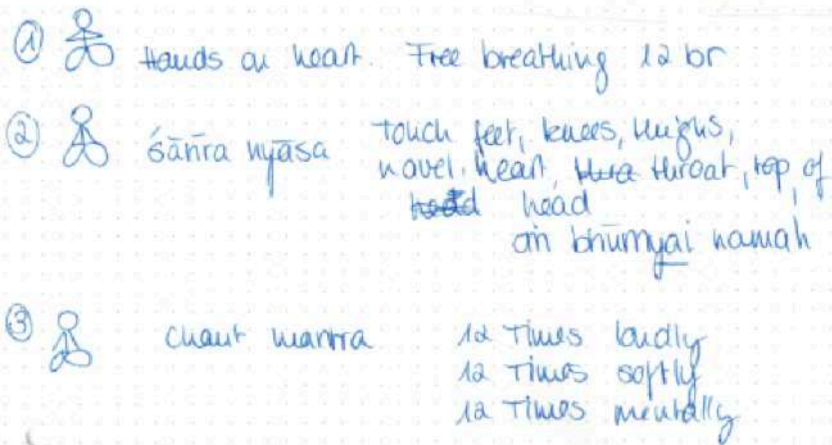 ① Hands on heart. Free breathing 12 br
② śārīra nyāsa touch feet, knees, thighs,
navel, heart, throat, top of
head
om bhūmyai namah
③ chant mantra 12 Times loudly
12 Times softly
12 Times mentally